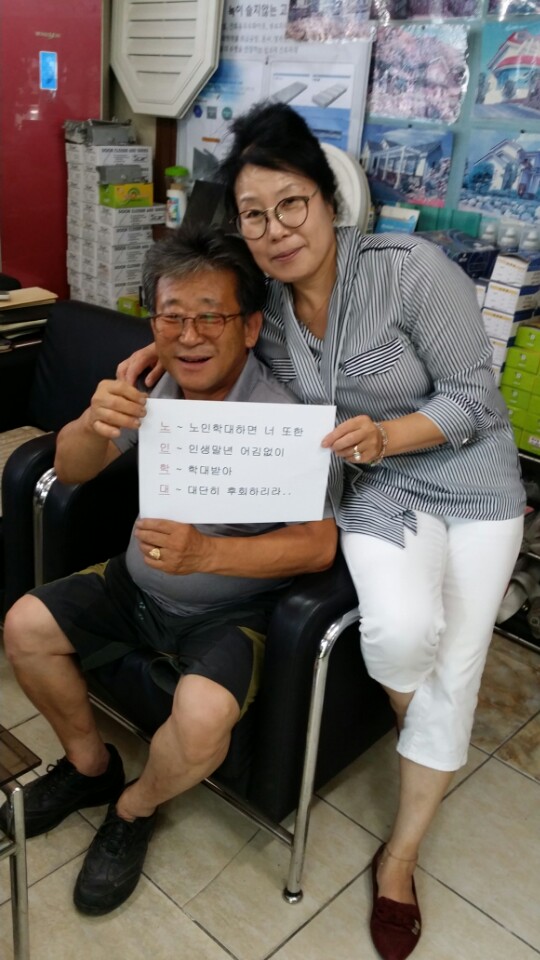 녹이 슬지않는 고
노 ~ 노인학대하면 너 또한
인 ~ 인생말년 어김없이
학 ~ 학대받아
대 ~ 대단히 후회하리라..